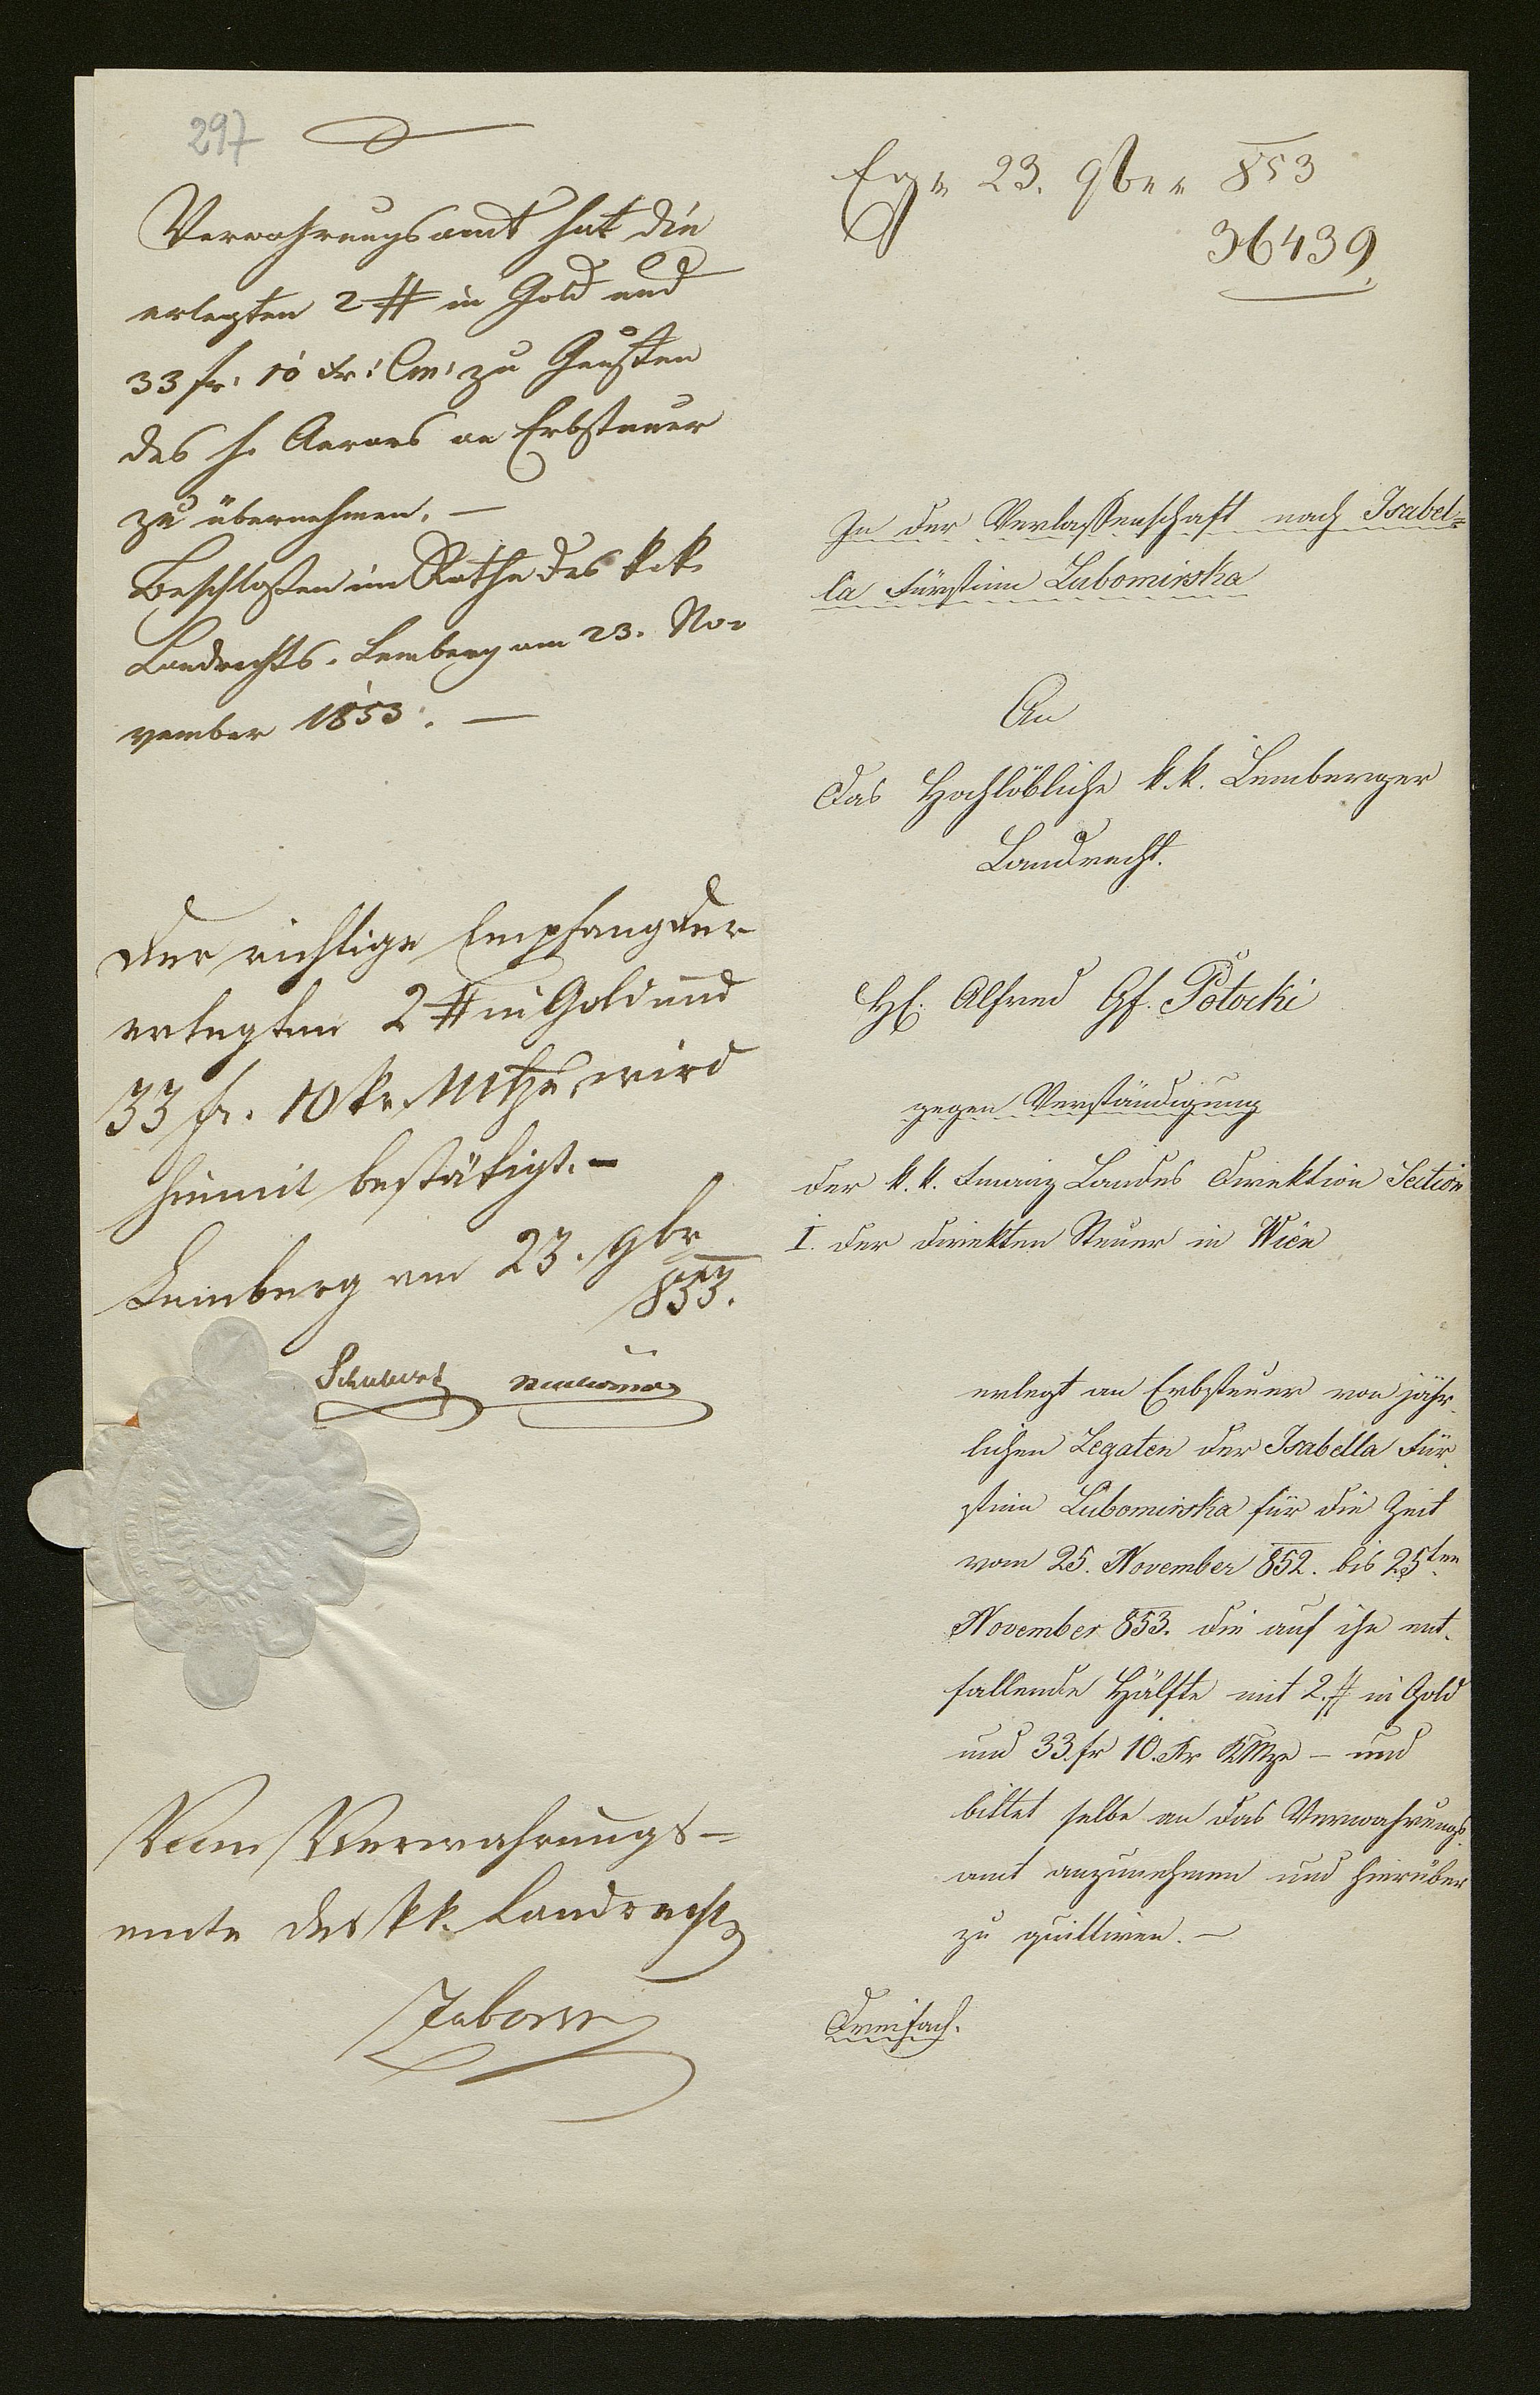 297
Verwahrungsamt hat die
erlegten 2 # in Gold und
33 fr: 10 Xr: Cm: zu Gunsten
des h. Aerars an Erbsteuer
zu übernehmen. —
Beschloßen im Rathe des k. k.
Landrechts. Lemberg am 23. No=
vember 1853. —
Der richtige Empfang der
erlegten 2 # in Gold und
33 fr. 10 kr. Mtze, wird
hiemit bestätigt. —
Lemberg am 23. 9br
853.
Schubert
Vom Verwahrungs=
amte des kk. Landrechts
23. 9ber 853
36439
In der Verlaßenschaft nach Isabel=
la Fürstinn Lubomirska
An
das Hochlöbliche k. k. Lemberger
Landrecht.
H. Alfred Gf. Potocki
gegen Verständigung
der k. k. Finanz Landes Direktion Section
I. der direkten Steuer in Wien
erlegt an Erbsteuer von jähr
lichen Legaten der Isabella Für
stinn Lubomirska für die Zeit
vom 25. November 852. bis 25ten
November 853. die auf ihn ent
fallende Hälfte mit 2 # in Gold
und 33 fr 10 Xr KMze – und
bittet selbe an das Verwahrungs
amt anzunehmen und hierüber
zu quittiren. —
Dreifach.